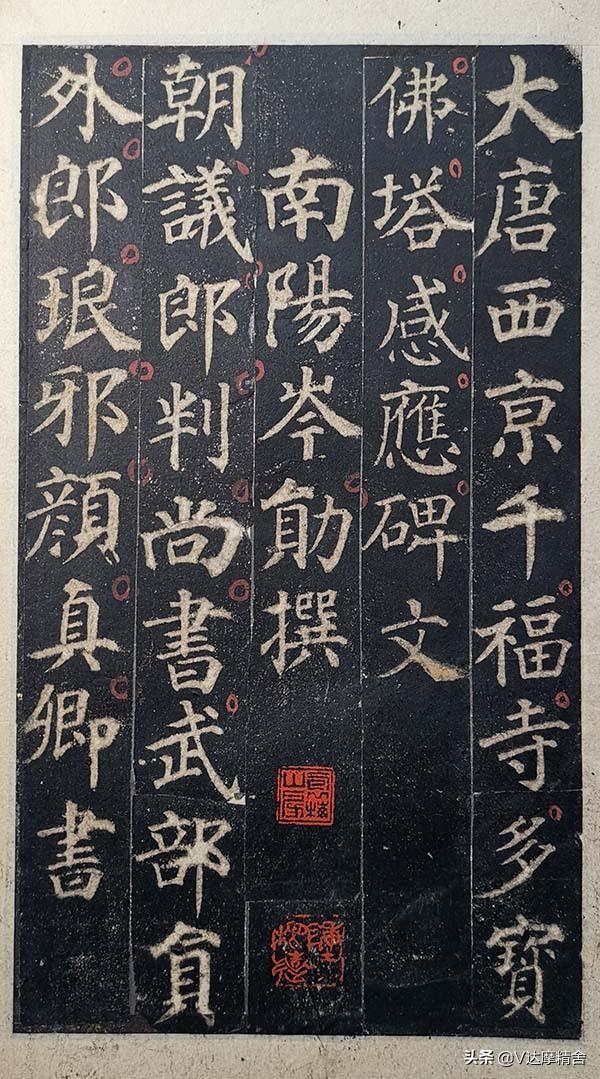 大唐西京千福寺多寶
佛塔感應碑文
南陽岑勛撰
朝議郎判尚書武部員
外郎琅邪顏真卿書
头条 @V达摩精舍